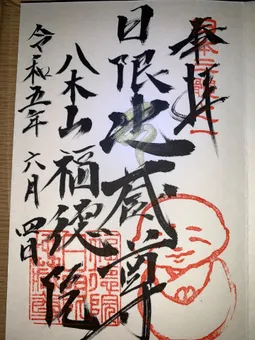 奉拝
日限地蔵尊
八木山福徳院
令和五年六月四日